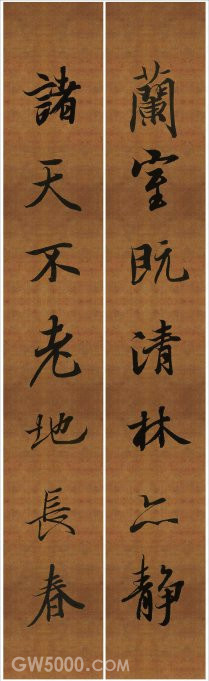 蘭室既清林亦静
諸天不老地長春
GW5000.com